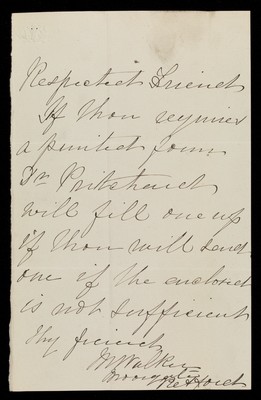 Respected Friend
If thou requires
a printed form
Dr Pritchard
will fill one up
if thou will send
one if the enclosed
is not sufficient
thy friend
M Walker